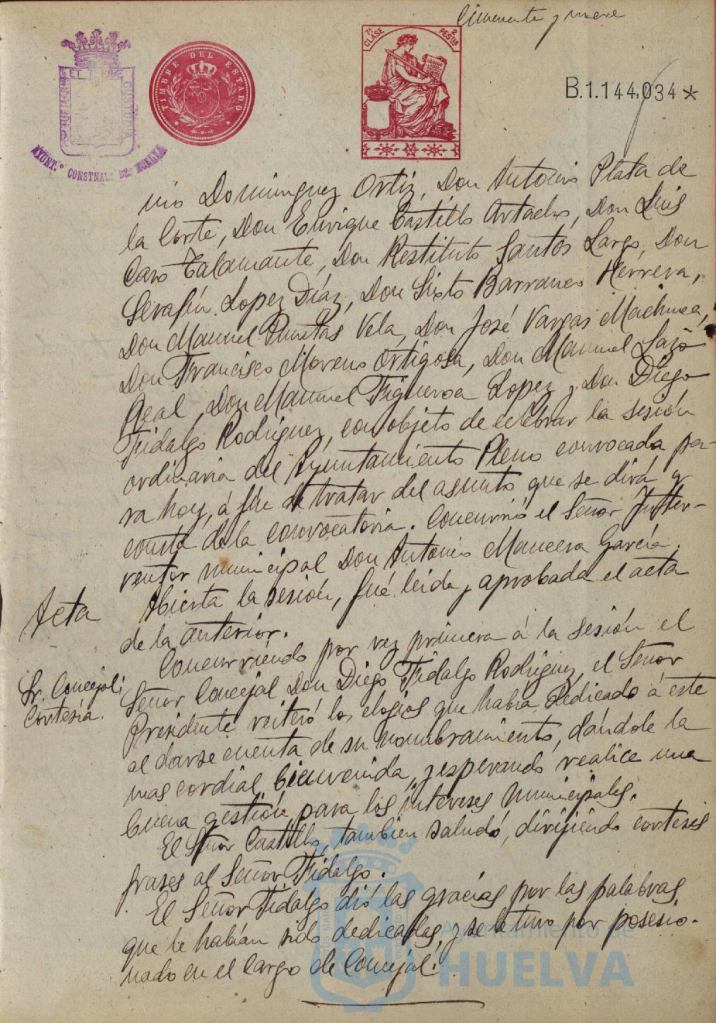 Cincuenta y nueve
7ª CLASE
2 PESTAS
TIMBRE DEL ESTADO
B.1.144.034*
AYUNT.º CONSTNAL. DE HUELVA
nio Dominguez Ortiz, Don Antonio Plata de
la Corte, Don Enrique Castillo Artacho, Don Luis
Caro Talamante, Don Restituto Santos Largo, Don
Serafín Lopez Díaz, Don Sixto Barranco Herrera,
Don Manuel Puntas Vela, Don José Vargas Machuca,
Don Francisco Moreno Ortigosa, Don Manuel Lazo
Real, Don Manuel Figueroa Lopez y Don Diego
Fidalgo Rodriguez, con objeto de celebrar la sesión
ordinaria del Ayuntamiento Pleno convocada pa-
ra hoy, á fin de tratar del asunto que se dirá y
consta de la convocatoria. Concurrió el Señor Inter-
ventor municipal Don Antonio Mancera García.
Acta
Abierta la sesión, fué leida y aprobada el acta
de la anterior.
Sr. Concejal:
Cortesía.
Concurriendo por vez primera á la sesión el
Señor Concejal Don Diego Fidalgo Rodriguez, el Señor
Presidente reiteró los elogios que había dedicado á este
al darse cuenta de su nombramiento, dándole la
mas cordial bienvenida, y esperando realice una
buena gestión para los intereses municipales.
El Señor Castillo, tambien saludó, dirigiendo corteses
frases al Señor Fidalgo.
El Señor Fidalgo dió las gracias por las palabras
que le habían sido dedicadas, y se le tuvo por posesio-
nado en el cargo de Concejal.
Ayuntamiento de
HUELVA